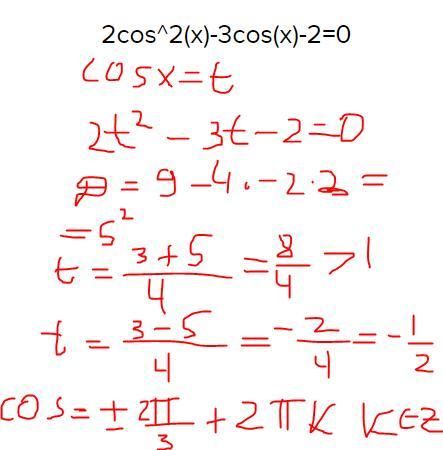 2cos^2(x)-3cos(x)-2=0
cosx=t
2t² - 3t - 2 = 0
D = 9 - 4 · -2 · 2 =
= 5²
t = (3 + 5)/4 = 8/4 > 1
t = (3 - 5)/4 = - 2/4 = - 1/2
cos = ± 2π/3 + 2πK K∈Z